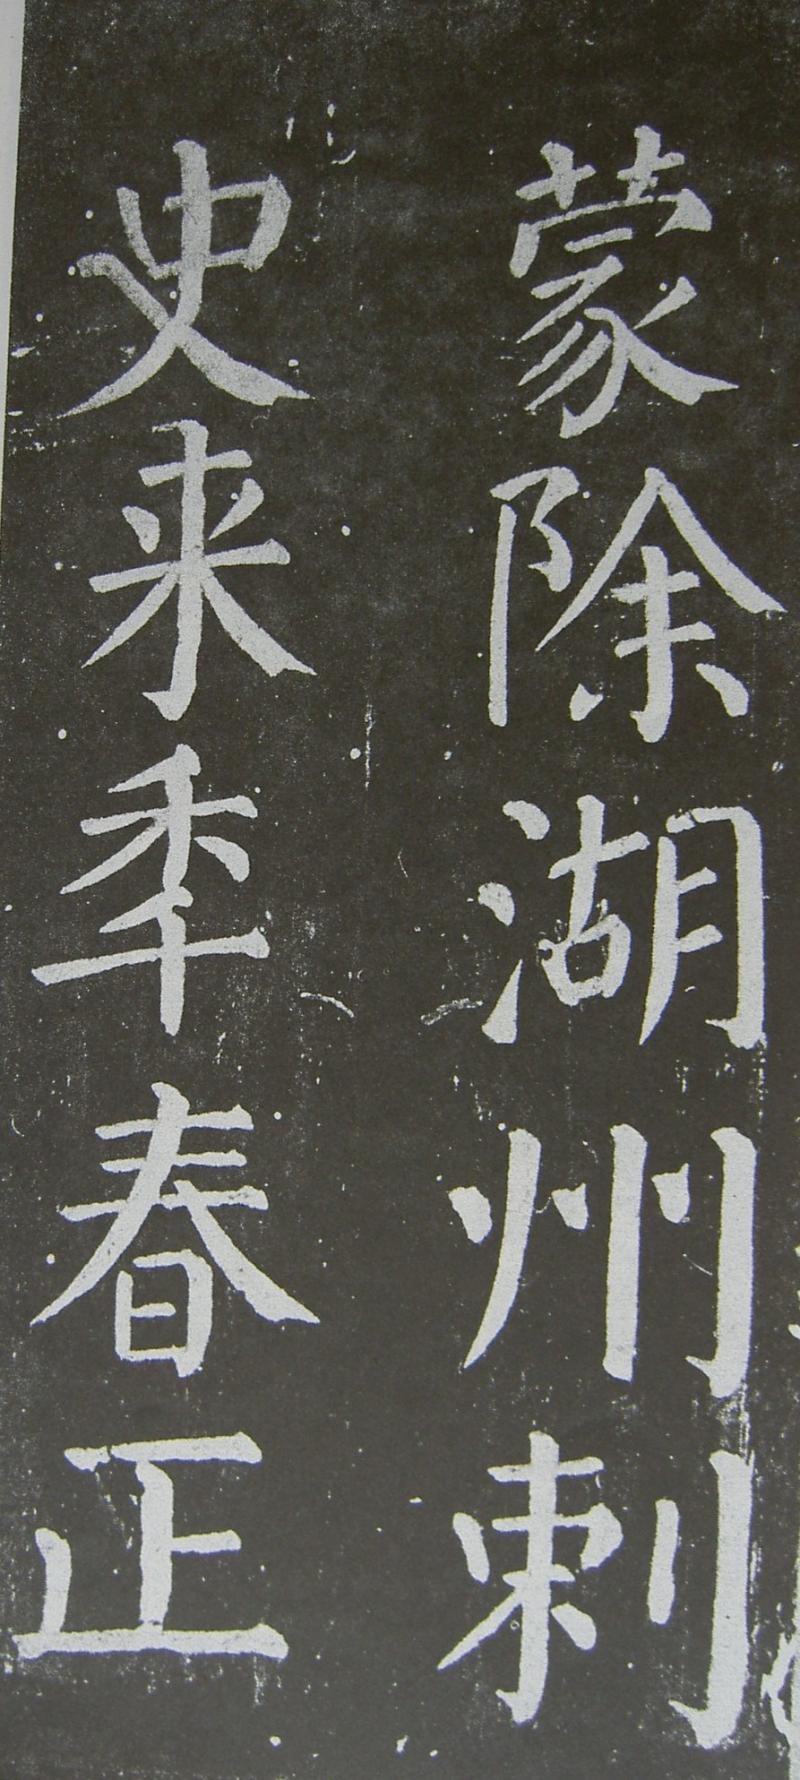 蒙除湖州刾
史来季春正